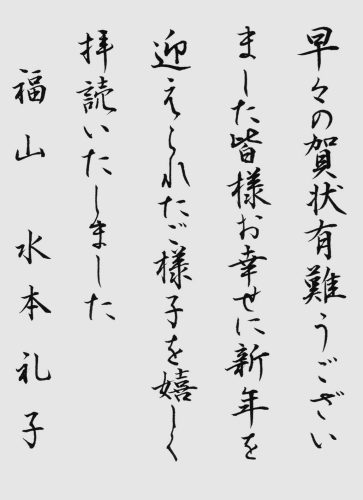 早々の賀状有難うござい
ました皆様お幸せに新年を
迎えられたご様子を嬉しく
拝読いたしました
福山 水本礼子